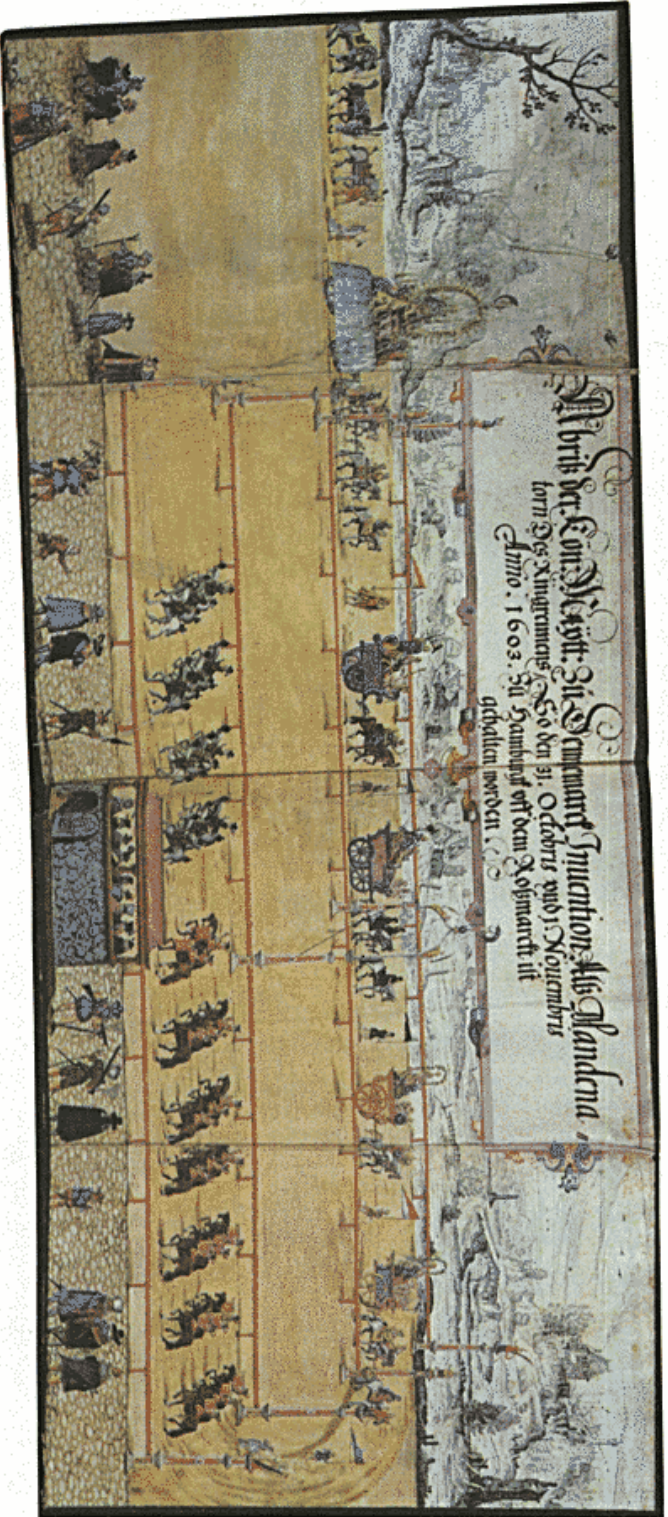 Abriß der Kön. Maÿtt. Zu Dennemarck Inuention Als Mandena,
torn Des Ringrennens So den 31. Octobris vnd 1 Nouembris
Anno. 1603. Zü Hamburg vff dem Roßmarckt ist
gehalten worden